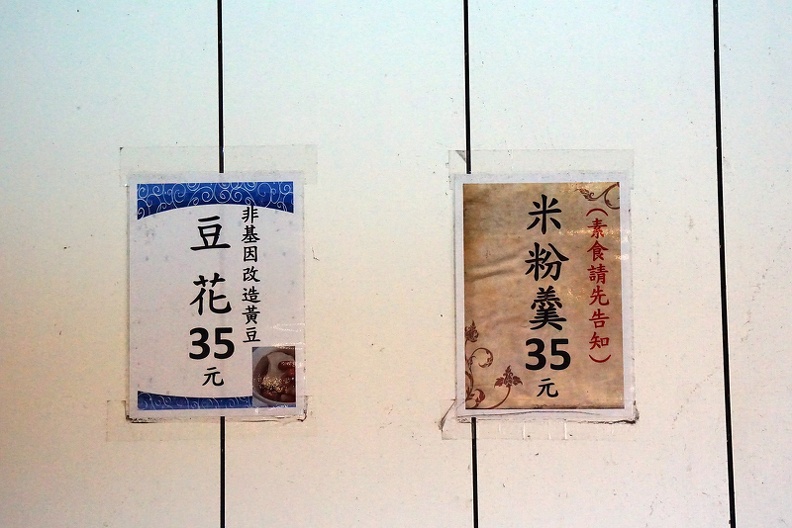 非基因改造黃豆
豆花35元
（素食請先告知）
米粉羹35元